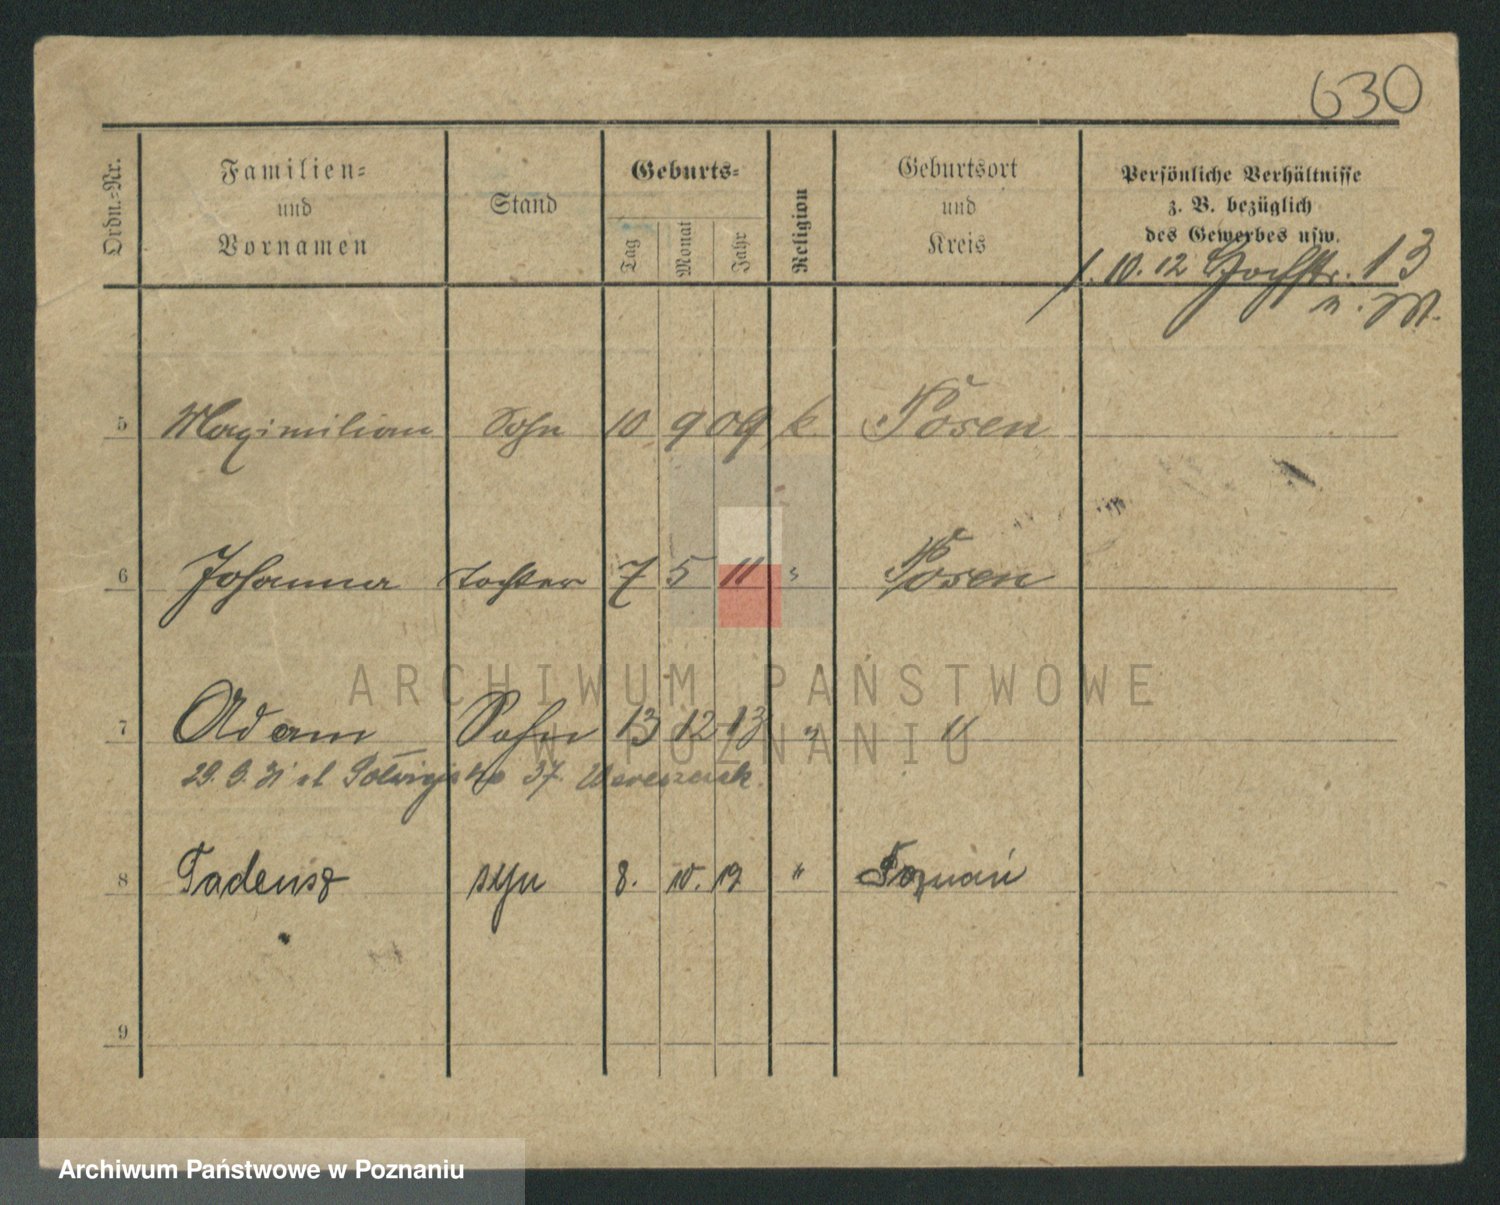 630
Ordn.-Nr.
Familien-
und
Vornamen
Stand
Geburts-
Tag
Monat
Jahr
Religion
Geburtsort
und
Kreis
Persönliche Verhältnisse
z. B. bezüglich
des Gewerbes usw.
1. 10. 12 Hochstr. 13
5 Maximilian Sohn 10 9 09 k. Posen
6 Johanna Tochter 7 5 11 " Posen
ARCHIWUM PAŃSTWOWE
W POZNANIU
7 Adam Sohn 13 12 13 " "
29. 9. 31 37.
8 Tadeusz syn 8. 10. 19 " Poznań
9
Archiwum Państwowe w Poznaniu